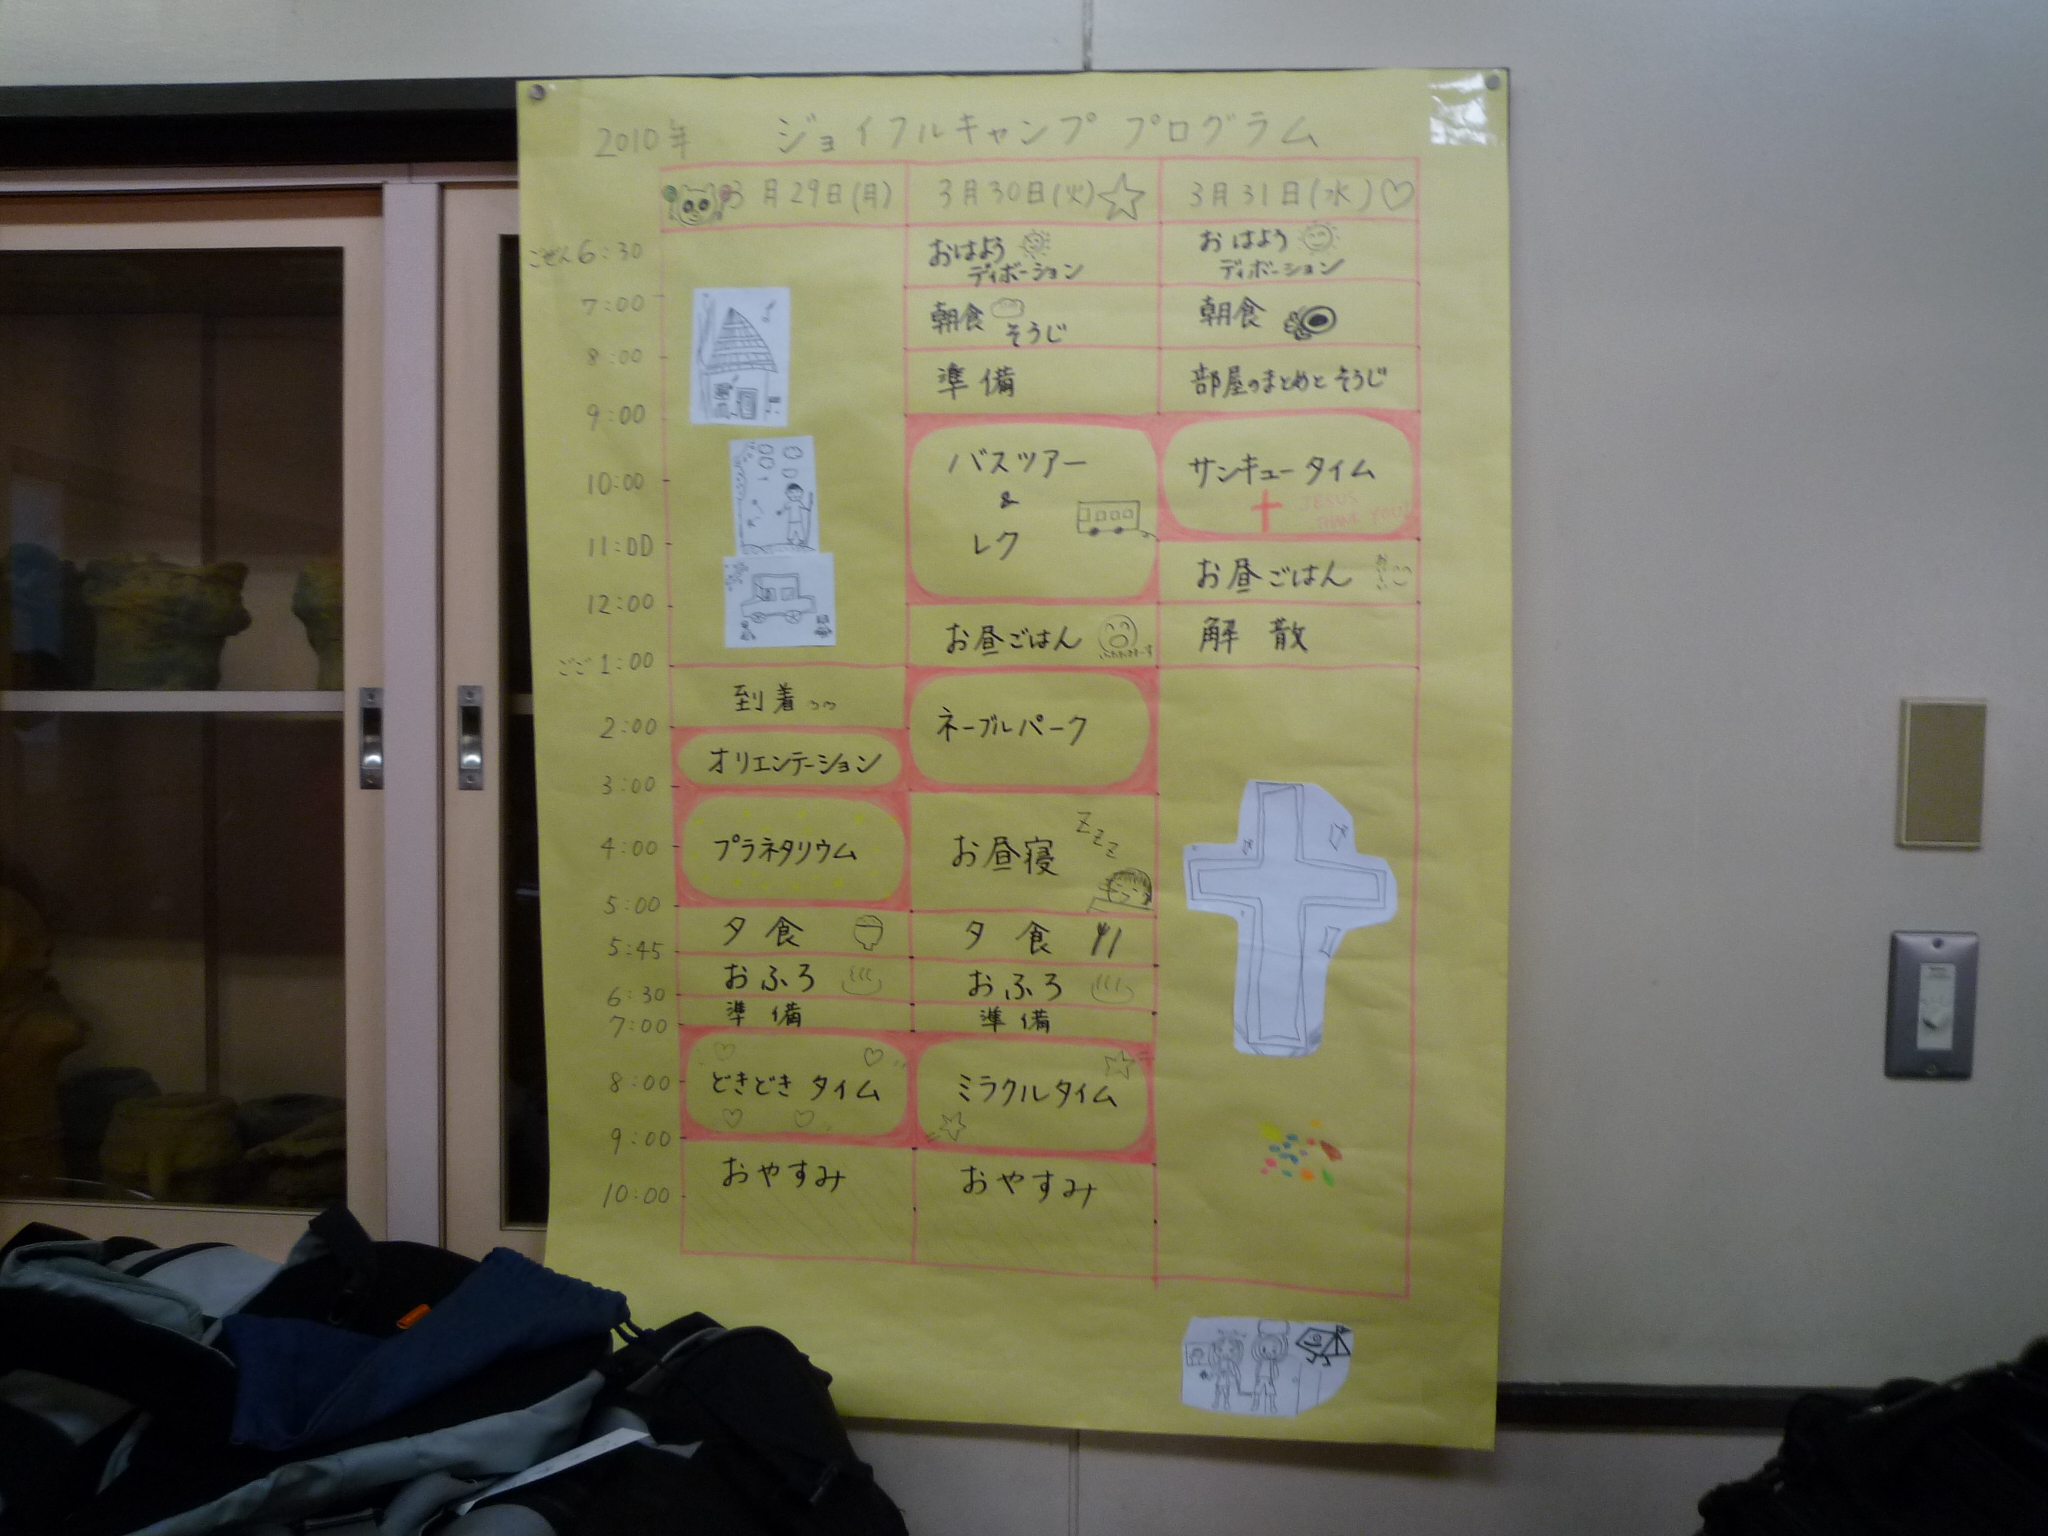 2010年 ジョイフルキャンプ プログラム
3月29日(月) 3月30日(火) 3月31日(水)
ごぜん6:30
7:00
8:00
9:00
10:00
11:00
12:00
ごご1:00
2:00
3:00
4:00
5:00
5:45
6:30
7:00
8:00
9:00
10:00
到着
オリエンテーション
プラネタリウム
夕食
おふろ
準備
どきどきタイム
おやすみ
おはよう
ディボーション
朝食
そうじ
準備
バスツアー
&
レク
お昼ごはん
ネーブルパーク
お昼寝
ZZZ
夕食
おふろ
準備
ミラクルタイム
おやすみ
おはよう
ディボーション
朝食
部屋のまとめとそうじ
サンキュータイム
JESUS
お昼ごはん
解散